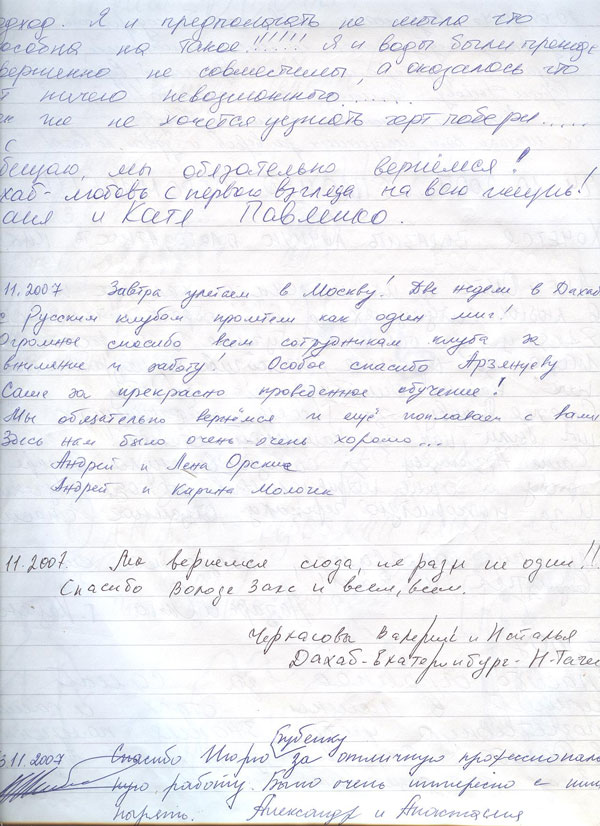 дход. Я и предполагать не могла что
особна на такое!!!!!! Я и воды были прежде
вершенно не совместимы, а оказалось что
т ничего невозможного.......
же не хочется уезжать черт побери.....
с
бещаю, мы обязательно вернёмся!
хаб- любовь с первого взгляда на всю жизнь!
аня и Катя Павленко.
11.2007 Завтра улетаем в Москву! Две недели в Дахаб
с Русским клубом пролетели как один миг!
Огромное спасибо всем сотрудникам клуба за
внимание и заботу! Особое спасибо Арзянцеву
Саше за прекрасно проведенное обучение!
Мы обязательно вернёмся и ещё поплаваем с вами
Здесь нам было очень-очень хорошо...
Андрей и Лена Орские
Андрей и Карина Молочек
11.2007. Мы вернемся сюда, не разы не один!!
Спасибо Володе Закс и всем, всем.
Черкасовы Валерий и Наталья
Дахаб-Екатеринбург-Н-Таги
Бубенку
3.11.2007 Спасибо Игорю за отличную профессиональ
ную работу. Было очень интересно с ним
нырять. Александр и Анастасия